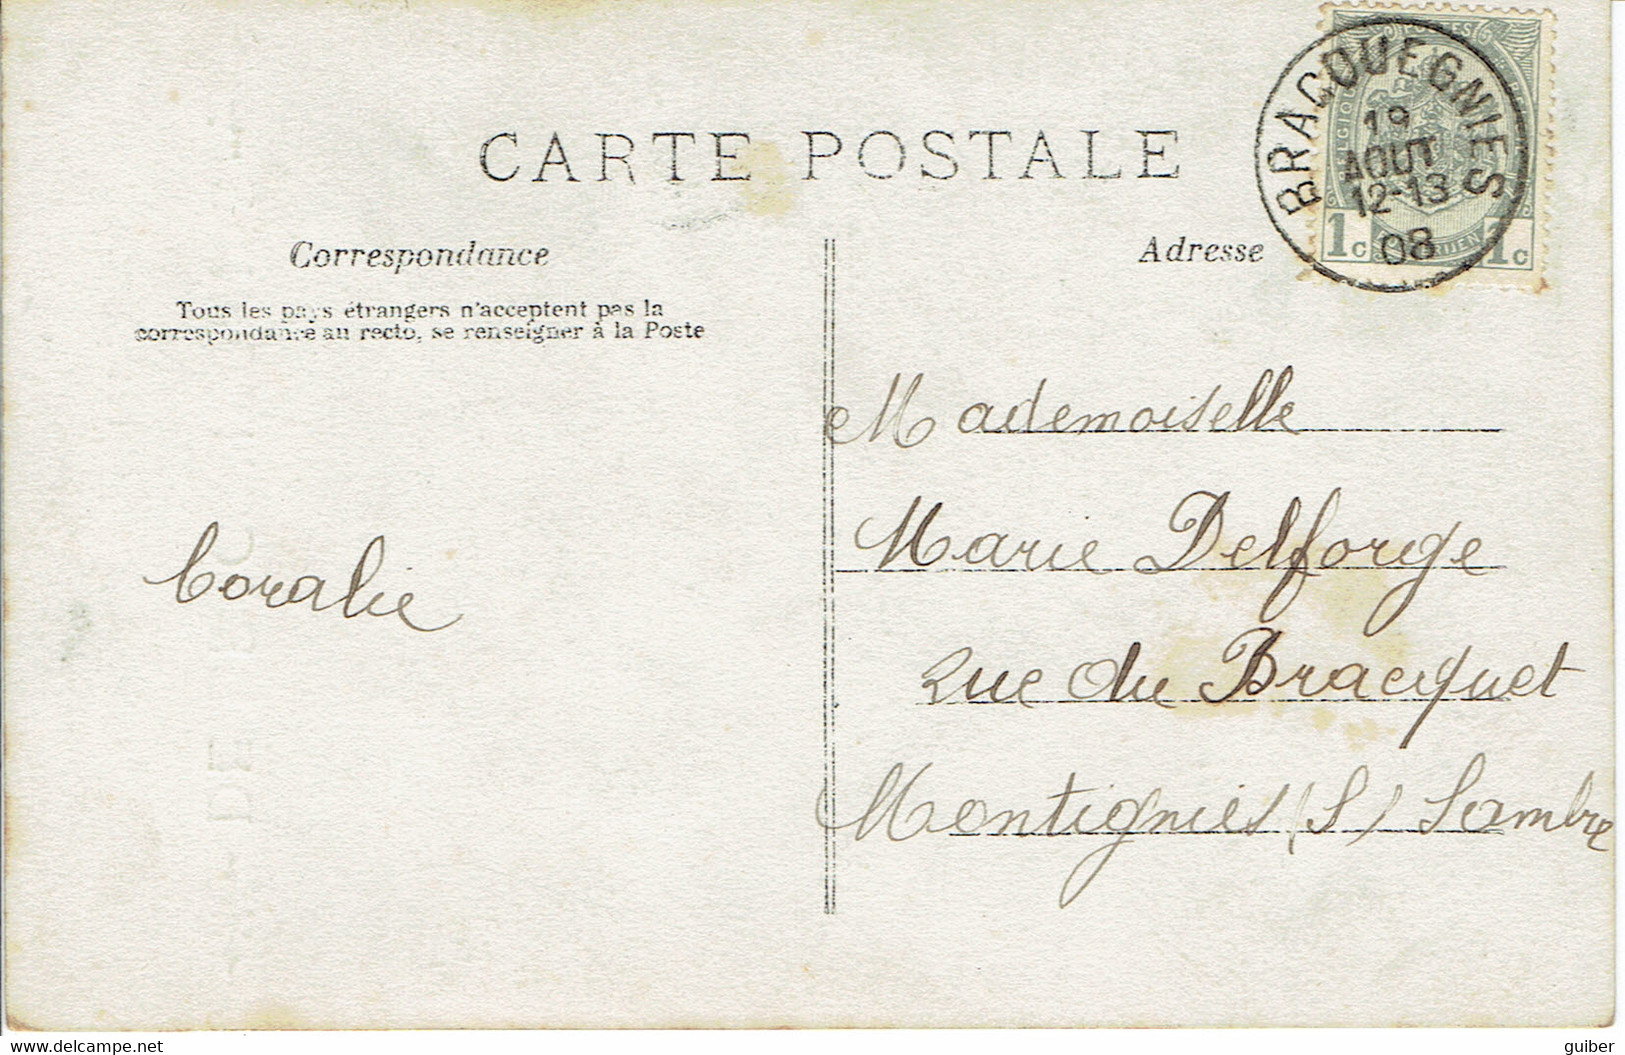 CARTE POSTALE
BRACQUEGNIES
19
AOUT
12-13
08
1c 1c
Correspondance
Adresse
Tous les pays étrangers n'acceptent pas la
correspondance au recto, se renseigner à la Poste
Mademoiselle
Marie Delforge
Rue du Bracquet
Montignies (S) Sambre
Coralie
delcampe.net
guiber